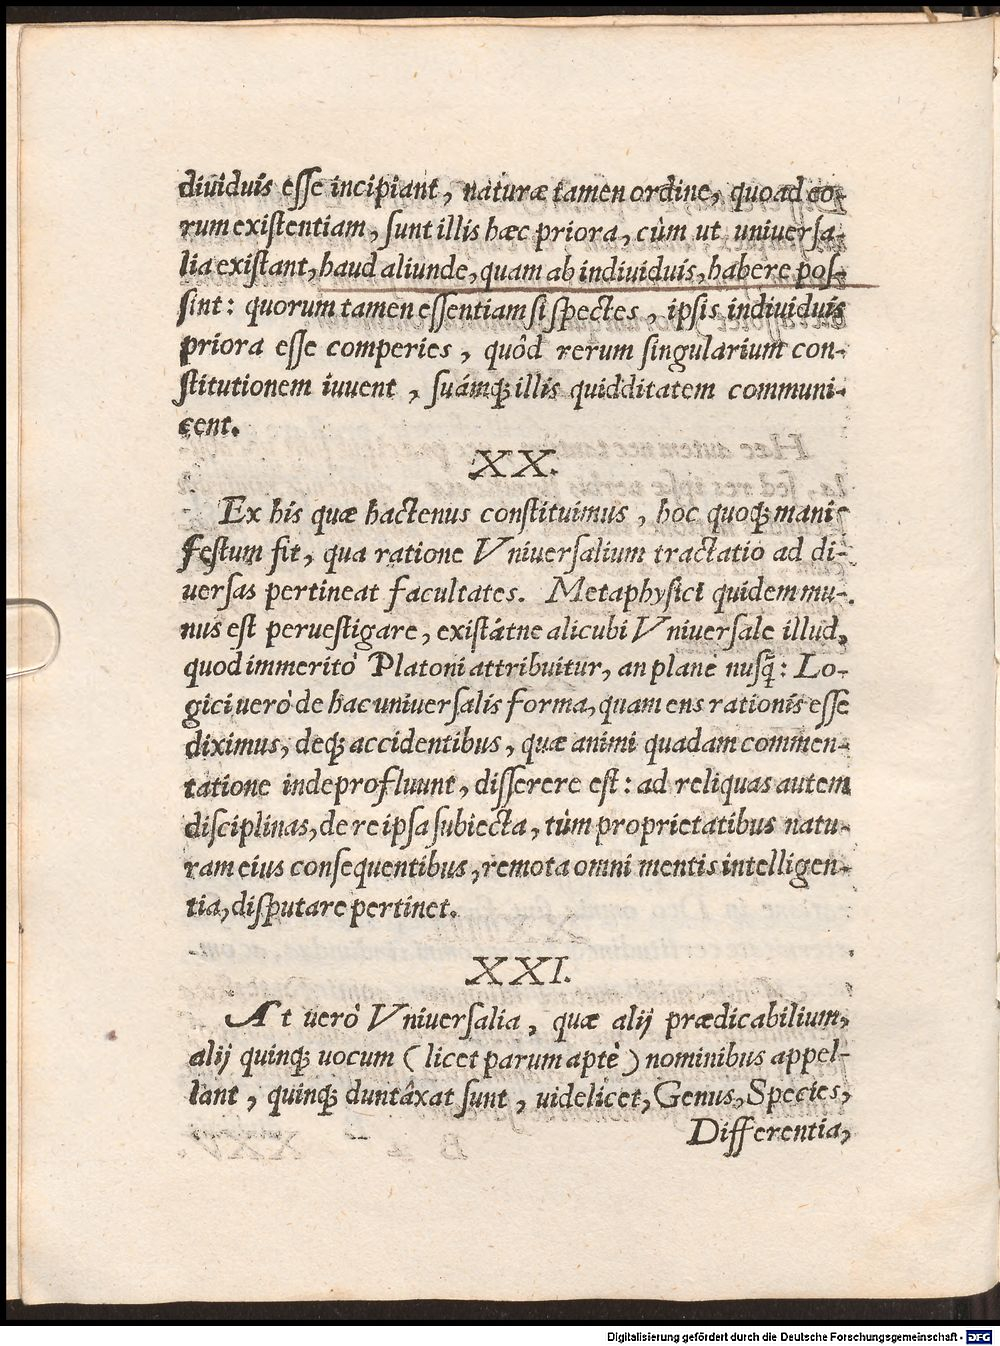 diuiduis esse incipiant, naturæ tamen ordine, quoad eo-
rum existentiam, sunt illis hæc priora, cùm ut uniuersa-
lia existant, haud aliunde, quam ab indiuiduis, habere pos-
sint: quorum tamen essentiam si spectes, ipsis indiuiduis
priora esse comperies, quôd rerum singularium con-
stitutionem iuuent, suámq; illis quidditatem communi-
cent.
XX.
Ex his quæ hactenus constituimus, hoc quoq; mani-
festum fit, qua ratione Vniuersalium tractatio ad di-
uersas pertineat facultates. Metaphysici quidem mu-
nus est peruestigare, existátne alicubi Vniuersale illud,
quod immeritò Platoni attribuitur, an plane nusq̃: Lo-
gici uerò de hac uniuersalis forma, quam ens rationis esse
diximus, deq; accidentibus, quæ animi quadam commen-
tatione inde profluunt, disserere est: ad reliquas autem
disciplinas, de re ipsa subiecta, tùm proprietatibus natu-
ram eius consequentibus, remota omni mentis intelligen-
tia, disputare pertinet.
XXI.
At uerò Vniuersalia, quæ alij prædicabilium,
alij quinq; uocum (licet parum aptè) nominibus appel-
lant, quinq; duntâxat sunt, uidelicet, Genus, Species,
Differentia,
Digitalisierung gefördert durch die Deutsche Forschungsgemeinschaft - DFG